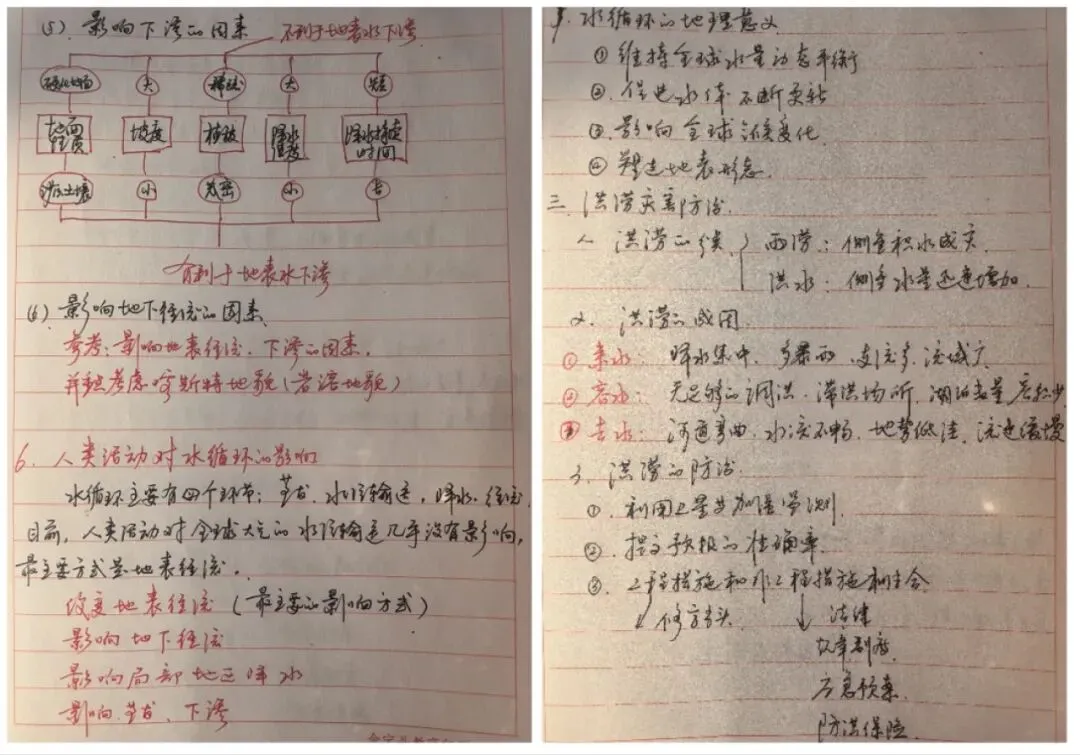 (5). 影响下渗的因素
不利于地表水下渗
硬化地面 大 稀疏 大 短
地面性质 坡度 植被 降水强度 降水持续时间
沙质土壤 小 茂密 小 长
有利于地表水下渗
(6) 影响地下径流的因素
参考：影响地表径流、下渗的因素，
并重点考虑喀斯特地貌（岩溶地貌）
6. 人类活动对水循环的影响
水循环主要有四个环节：蒸发、水汽输送，降水、径流
目前，人类活动对全球大气的水汽输送几乎没有影响，
最主要方式是地表径流。
改变地表径流（最主要的影响方式）
影响地下径流
影响局部地区降水
影响蒸发、下渗
7. 水循环的地理意义
① 维持全球水量动态平衡
②. 促进水体不断更新
③ 影响全球气候变化
④ 塑造地表形态
三. 洪涝灾害防治.
1. 洪涝的分类 雨涝：侧重积水成灾
洪水：侧重水量迅速增加.
2. 洪涝的成因
① 来水：降水集中、多暴雨、支流多、流域广
② 容水：无足够的调洪、滞洪场所，湖泊数量、容积少
③ 去水：河道弯曲、水流不畅、地势低洼、流速缓慢
3. 洪涝的防治
①. 利用卫星参加监测.
②. 提高预报的准确率
③. 工程措施和非工程措施相结合
修高
法律
规章制度
应急预案
防洪保险